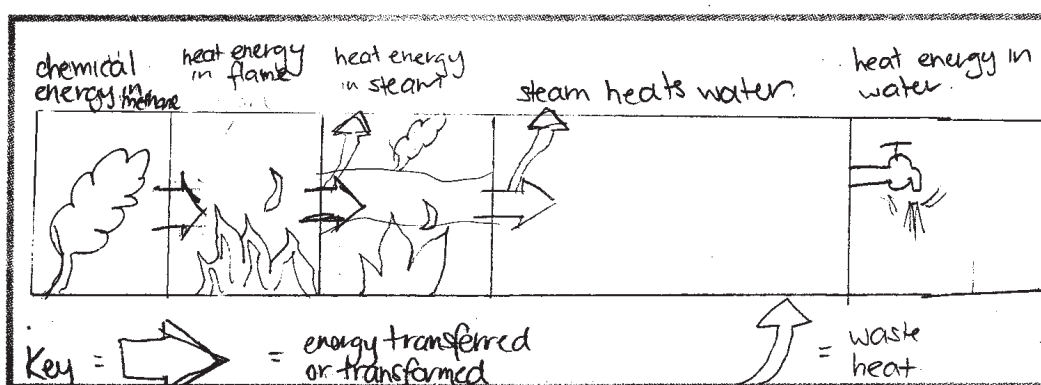 chemical
energy in methane
heat energy
in flame
heat energy
in steam
steam heats water.
heat energy in
water.
Key =
= energy transferred
or transformed
= waste
heat.